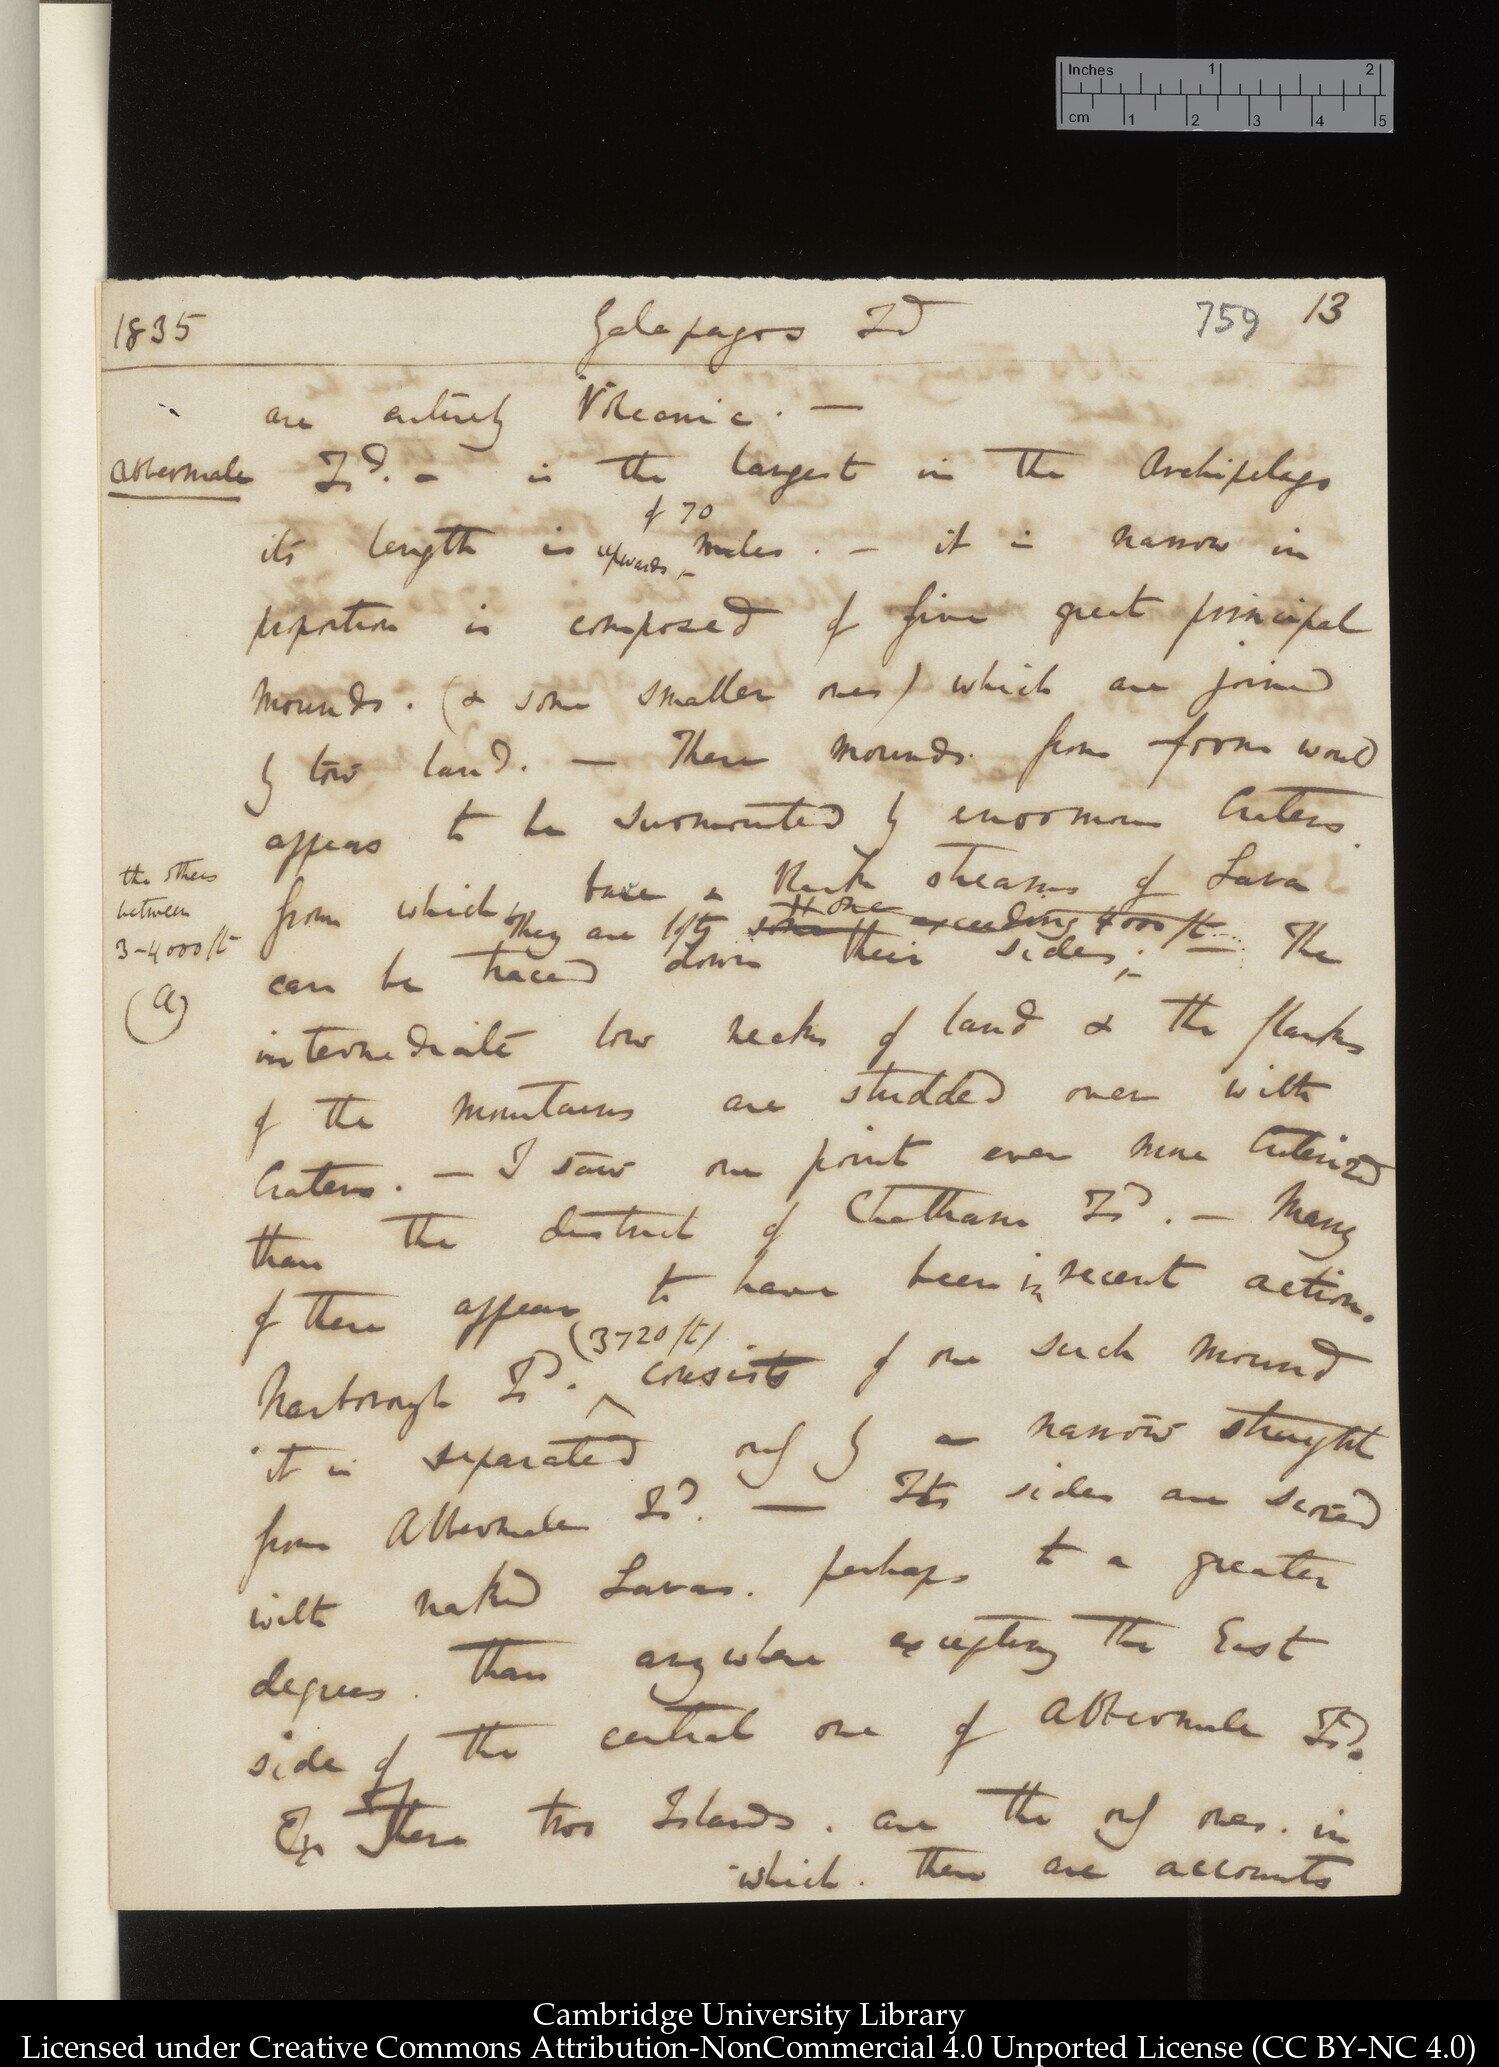 Inches 1 2
cm 1 2 3 4 5
1835 Galapagos Id 759 13
are entirely Volcanic. —
Albermale Id. - is the largest in the Archipelago
of 70
its length is upwards miles. — it is narrow in
proportion is composed of five great principal
mounds. (& some smaller ones) which are joined
by low land. — These mounds. from form would
appear to be surmounted by enormous Craters.
the others
between
3-4000 ft
(a)
from which bare & black streams of Lava
They are lofty some one exceeding 4000 ft
can be traced down their sides; — The
intermediate low necks of land & the flanks
of the mountains are studded over with
Craters. — I saw one point even more Craterized
than the district of Chatham Id. — Many
of these appear to have been in recent action.
(3720 ft)
Narborough Id. consists of one such mound
it is separated only by a narrow streight
from Albermale Id. — Its sides are scored
with naked Lavas. perhaps to a greater
degrees. than any where excepting the East
side of the central one of Albermale Id.
These two Islands. are the only ones. in
which. there are accounts
Cambridge University Library
Licensed under Creative Commons Attribution-NonCommercial 4.0 Unported License (CC BY-NC 4.0)